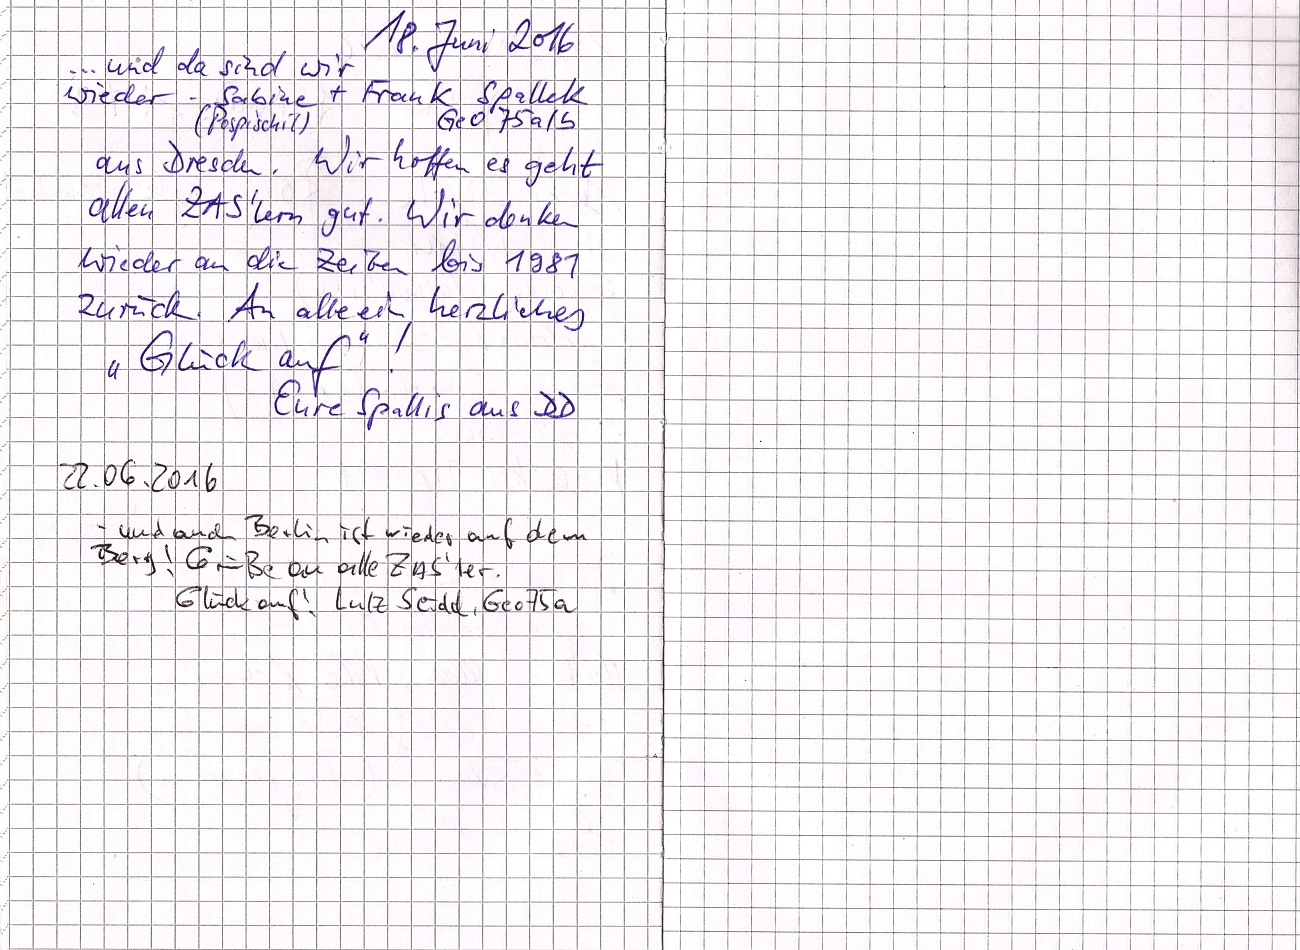 18. Juni 2016
... und da sind wir
wieder - Sabine + Frank Spallek
(Pospischil) Geo 75a/b
aus Dresden. Wir hoffen es geht
allen ZAS'lern gut. Wir denken
wieder an die Zeiten bis 1981
zurück. An alle ein herzliches
„Glück auf“!
Eure Spallis aus DD
22.06.2016
- und auch Berlin ist wieder auf dem
Berg! Grüße an alle ZAS'ler.
Glück auf! Lutz Seidel, Geo75a